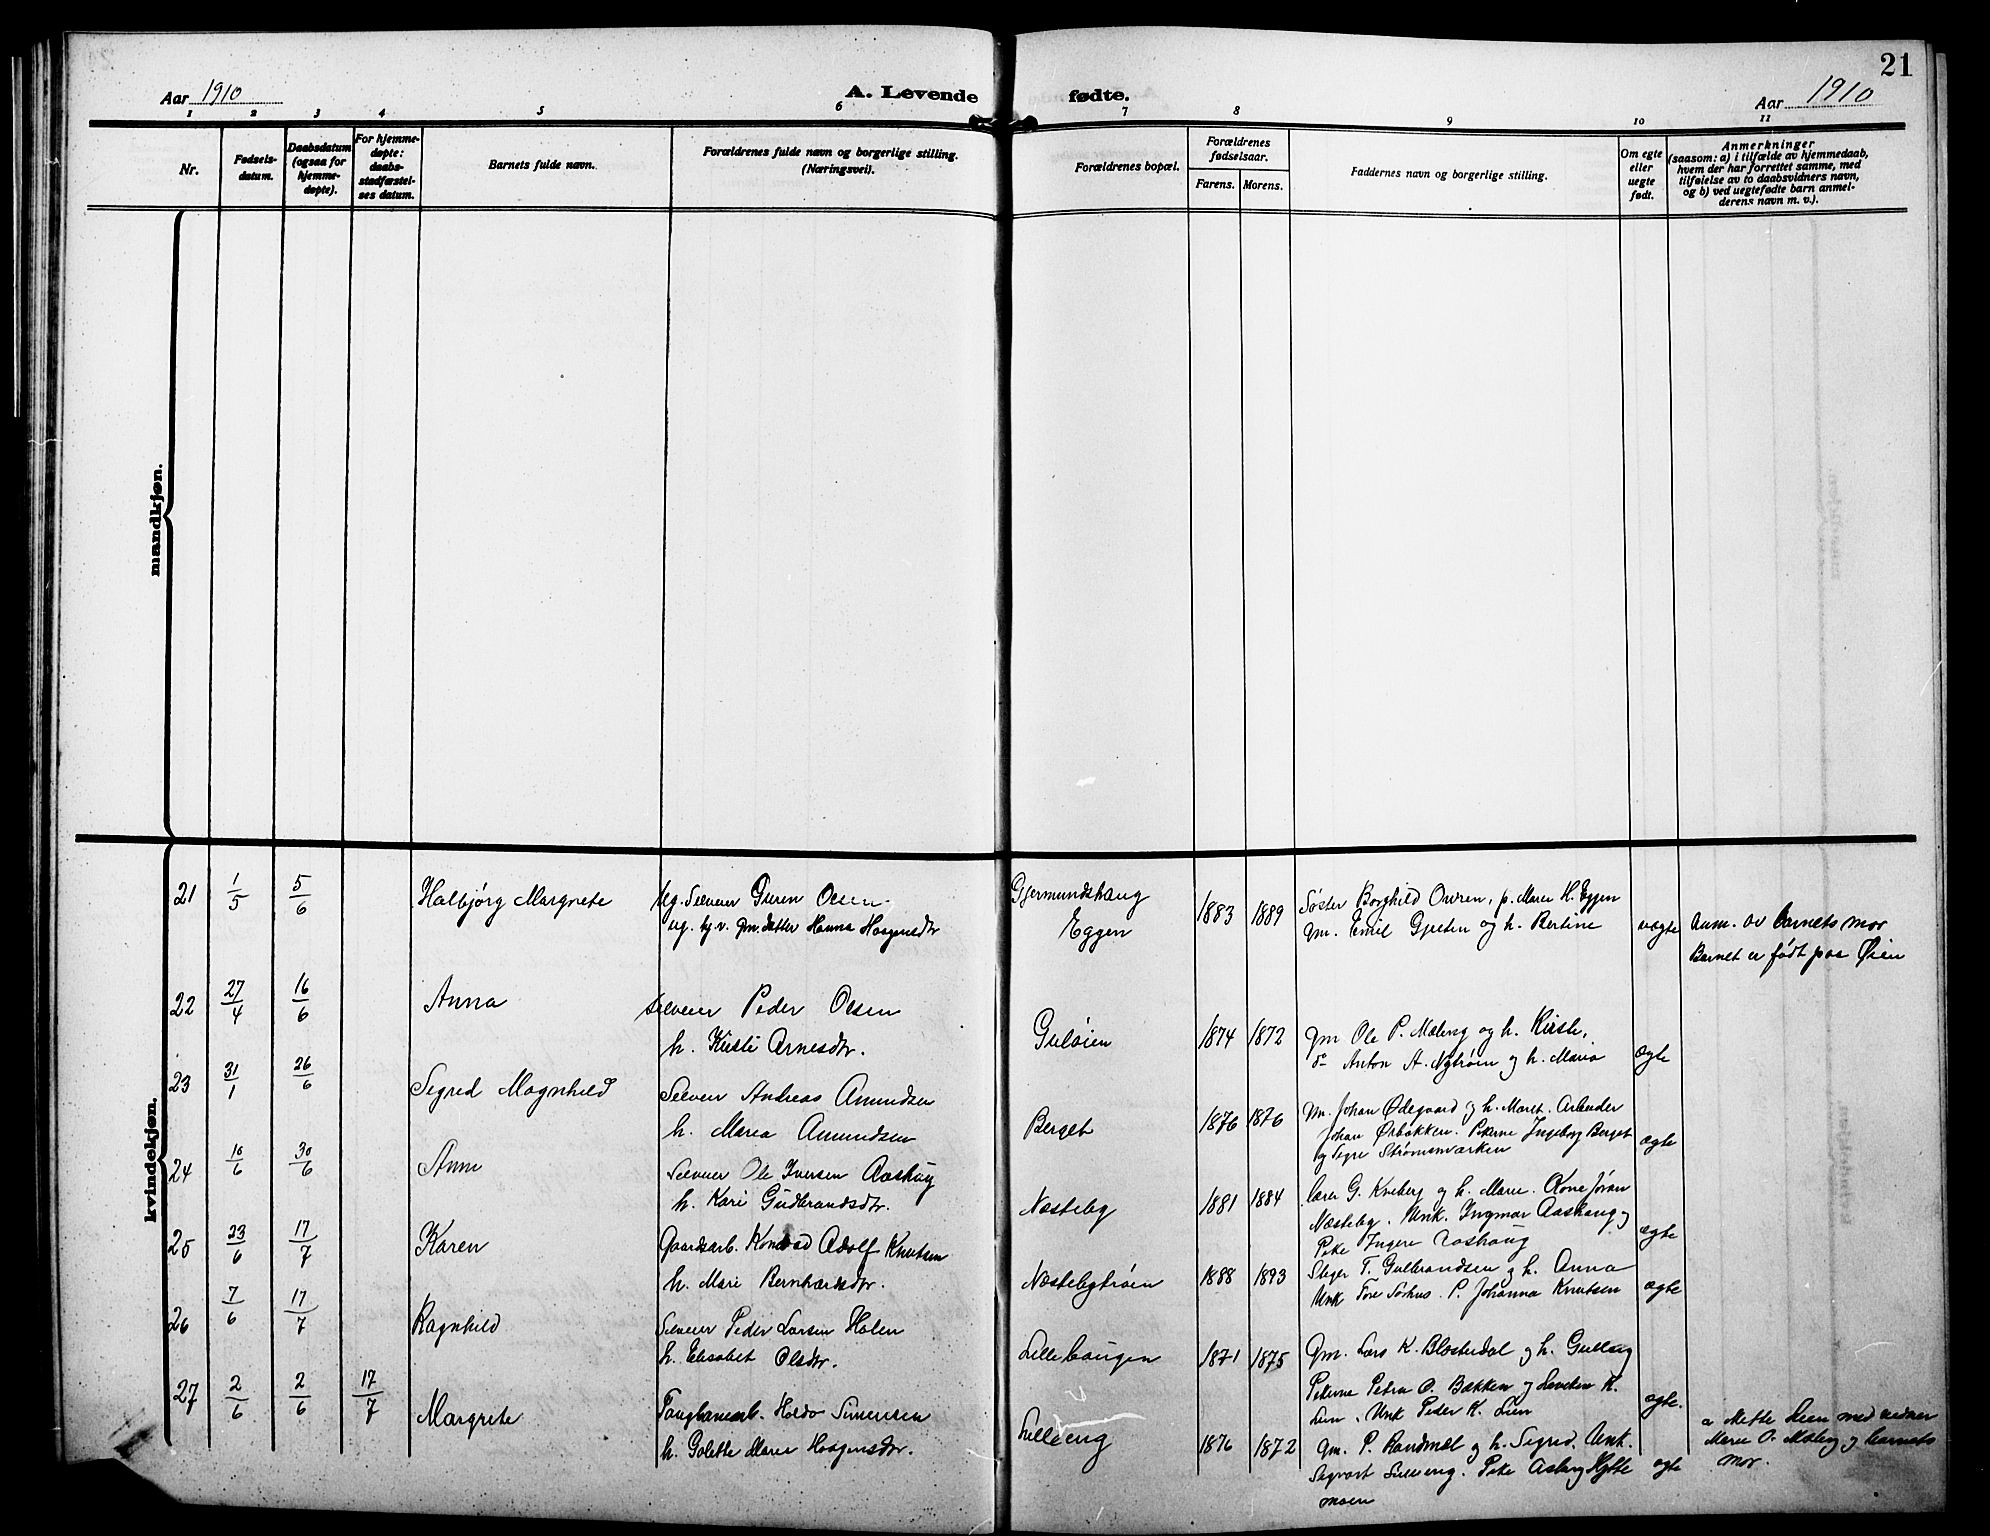 21
Aar 1910
A. Levende fødte.
Aar 1910
1 2 3 4 5 6 7 8 9 10 11
Nr.
Fødsels-
datum.
Daabsdatum
(ogsaa for
hjemme-
døpte).
For hjemme-
døpte:
daabs-
stadfæstel-
ses datum.
Barnets fulde navn.
Forældrenes fulde navn og borgerlige stilling.
(Næringsvei).
Forældrenes bopæl.
Forældrenes
fødselsaar.
Farens. Morens.
Faddernes navn og borgerlige stilling.
Om egte
eller
uegte
født.
Anmerkninger
(saasom: a) i tilfælde av hjemmedaab,
hvem der har forrettet samme, med
tilføielse av to daabsvidners navn,
og b) ved uegtefødte barn anmel-
derens navn m. v.).
mandkjøn.
kvindekjøn.
21 1/5 5/6 Halbjørg Margrete
Ug. Selveier Olsen
ug. Hanna
Gjermundshaug
Eggen
1883 1889
Søster Borghild p. Maren H. Eggen
Gm. Emil og h. Bertine
uægte
Anm. av barnets mor
Barnet er født paa Øien
22 27/4 16/6 Anna
Selveier Peder Olsen
h. Kirsti Arnesdtr.
Guløien
1874 1872
Gm Ole P. Moleng og h. Kirsti,
do Anton A. Nytrøen og h. Maria
ægte
23 31/1 26/6 Sigrid Magnhild
Selveier Andreas Amundsen
h. Maria Amundsen
Berget
1876 1876
Gm. Johan Ødegaard og h. Maret. Arbeider
Johan Pikerne Ingeborg Berget
og
ægte
24 10/6 30/6 Anne
Selveier Ole Iversen Aashaug
h. Kari Gudbrandsdtr.
Næsteby
1881 1884
G. Kneberg og h. Marie. Kone
Næsteby. Unk. Ingmar Aashaug og
Pike Aashaug
ægte
25 23/6 17/7 Karen
Gaardsarb. Konrad Adolf Knutsen
h. Mari Bernhardsdtr.
Næstebytrøen
1888 1893
T. Gulbrandsen og h. Anna
Unk Tore P. Johanna Knutsen
ægte
26 7/6 17/7 Ragnhild
Selveier Peder Larsen Holen
h. Elisabet Olsdtr.
Lillehaugen
1871 1875
Gm. Lars K. og h.
Pikerne Petra O. Bækken og K.
Lien, Unk Peder K. Lien
ægte.
27 2/6 2/6 17/7 Margrete
Simensen
h. Golette
Lilleeng
1876 1872
Gm. P. Randmæl og h. Sigrid. Unk.
Lilleeng. Pike Hytte
moen
ægte
a Mette Lien med vidner
O. Moleng og barnets
mor.